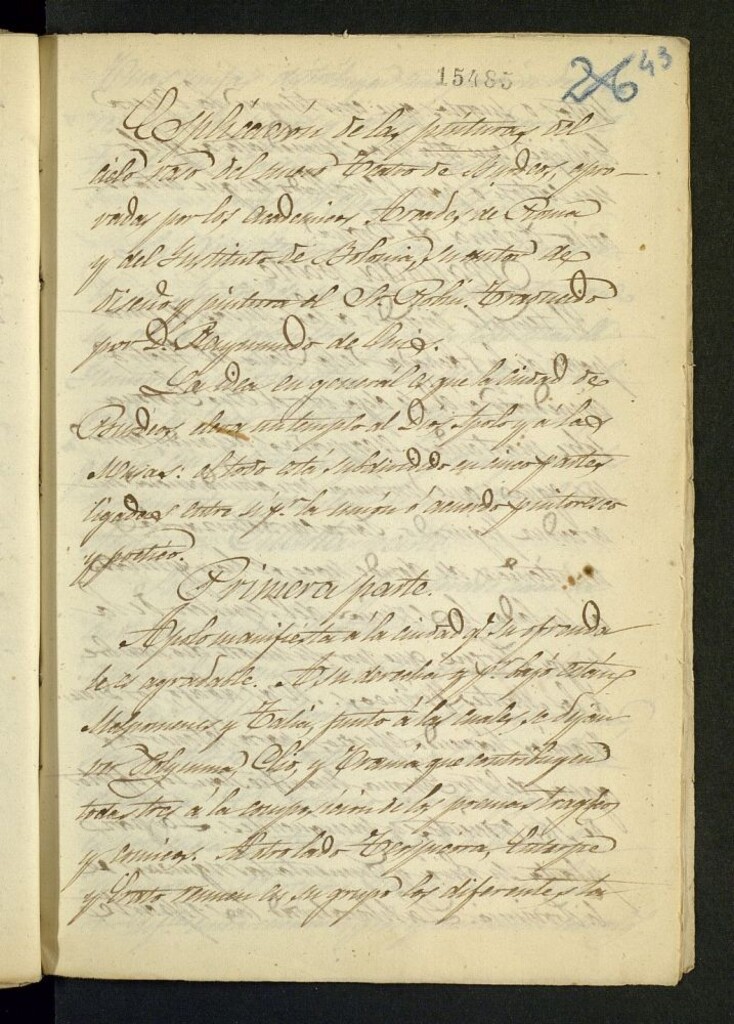 15485
26 43
Esplicación de las pinturas del
cielo raso del nuevo Teatro de Burdeos, apro-
vadas por los Academicos Arcades de Roma
y del Instituto de Bolonia, su autor de
diseño y pintura el Sr. Robin. Traducido
por D. Raymundo de
La idea en general es que la ciudad de
Burdeos, eleva un templo al Dios Apolo y a las
Musas: el todo está subdividido en cinco partes
ligadas entre sí pr. la unión ó acuerdo pintoresco
y poetico.
Primera parte.
Apolo manifiesta á la ciudad qe. su ofrenda
le es agradable. A su derecha y pr. bajo están
Melpomene y Talia, junto á las cuales se dejan
ver Polymnia, Clio, y Urania que contribuyen
todas tres á la composición de los poemas tragicos
y comicos. Al otro lado Terpsicora, Euterpe
y Erato reunen en su grupo los diferentes ta